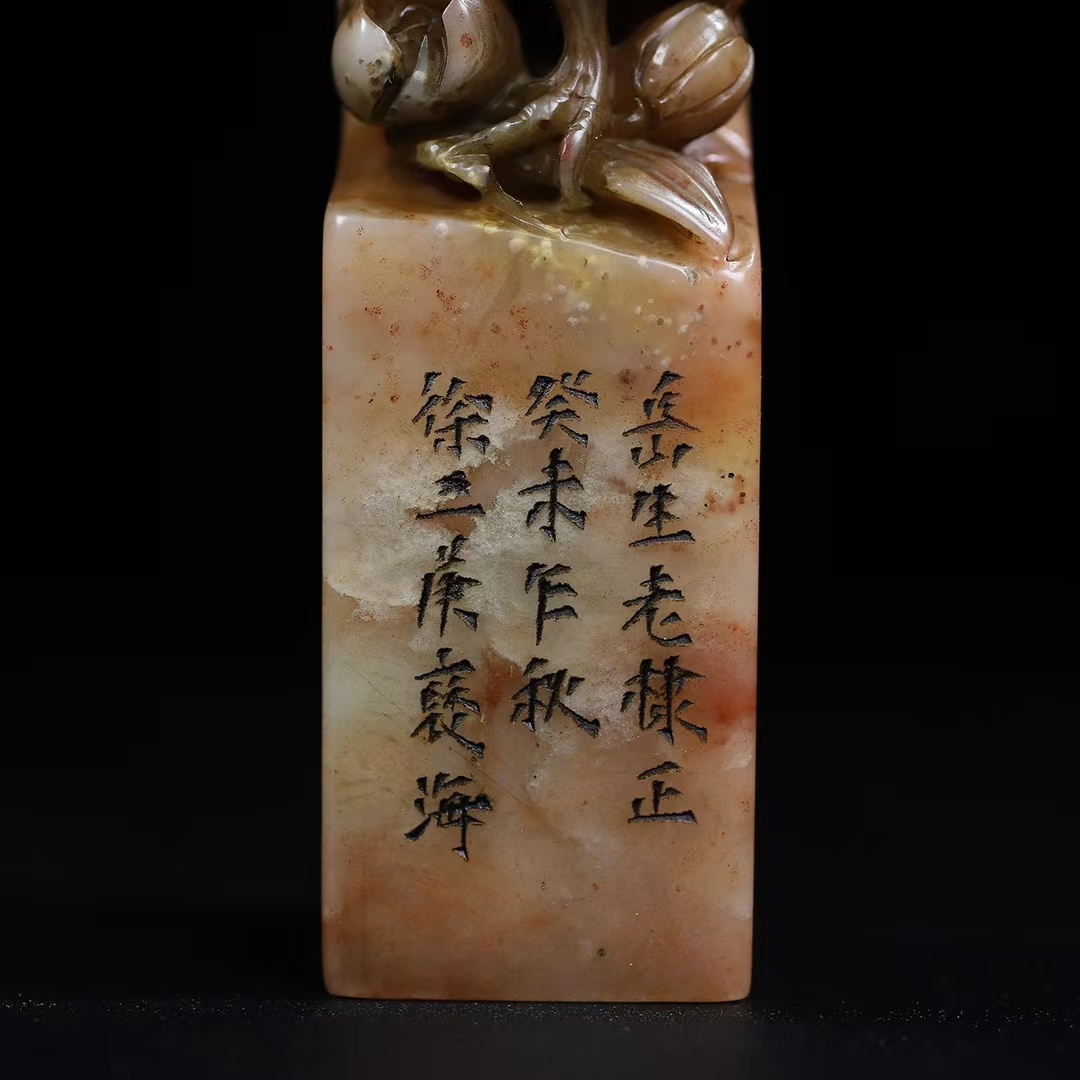 岳生老棣正
癸未乍秋
徐三庚褎海